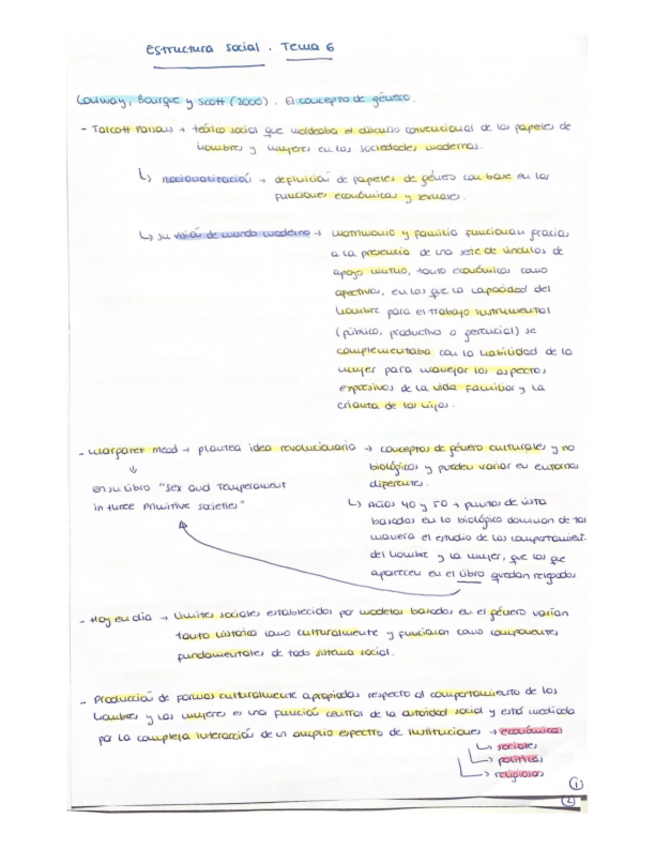 Estructura social. Tema 6
Conway, Bourque y Scott (2000). El concepto de género.
- Talcott Parsons → teórico social que moldeaba el discurso convencional de los papeles de
hombres y mujeres en las sociedades modernas.
↳ racionalización → definición de papeles de género con base en las
funciones económicas y sexuales.
↳ su visión de mundo moderno → matrimonio y familia funcionan gracias
a la presencia de una serie de vínculos de
apoyo mutuo, tanto económicos como
afectivos, en los que la capacidad del
hombre para el trabajo instrumental
(público, productivo o gerencial) se
complementaba con la habilidad de la
mujer para manejar los aspectos
expresivos de la vida familiar y la
crianza de los hijos.
- Margaret Mead → plantea idea revolucionaria → conceptos de género culturales y no
biológicos y pueden variar en entornos
diferentes.
↓
en su libro "Sex and Temperament
in three primitive societies"
↳ Años 40 y 50 → puntos de vista
basados en lo biológico dominan de tal
manera el estudio de los comportamient.
del hombre y la mujer, que los que
aparecen en el libro quedan relegados
- Hoy en día → límites sociales establecidos por modelos basados en el género varían
tanto histórica como culturalmente y funcionan como componentes
fundamentales de todo sistema social.
- Producción de formas culturalmente apropiadas respecto al comportamiento de los
hombres y las mujeres es una función central de la autoridad social y está mediada
por la compleja interacción de un amplio espectro de instituciones → económicas
↳ sociales
↳ políticas
↳ religiosas
1
2